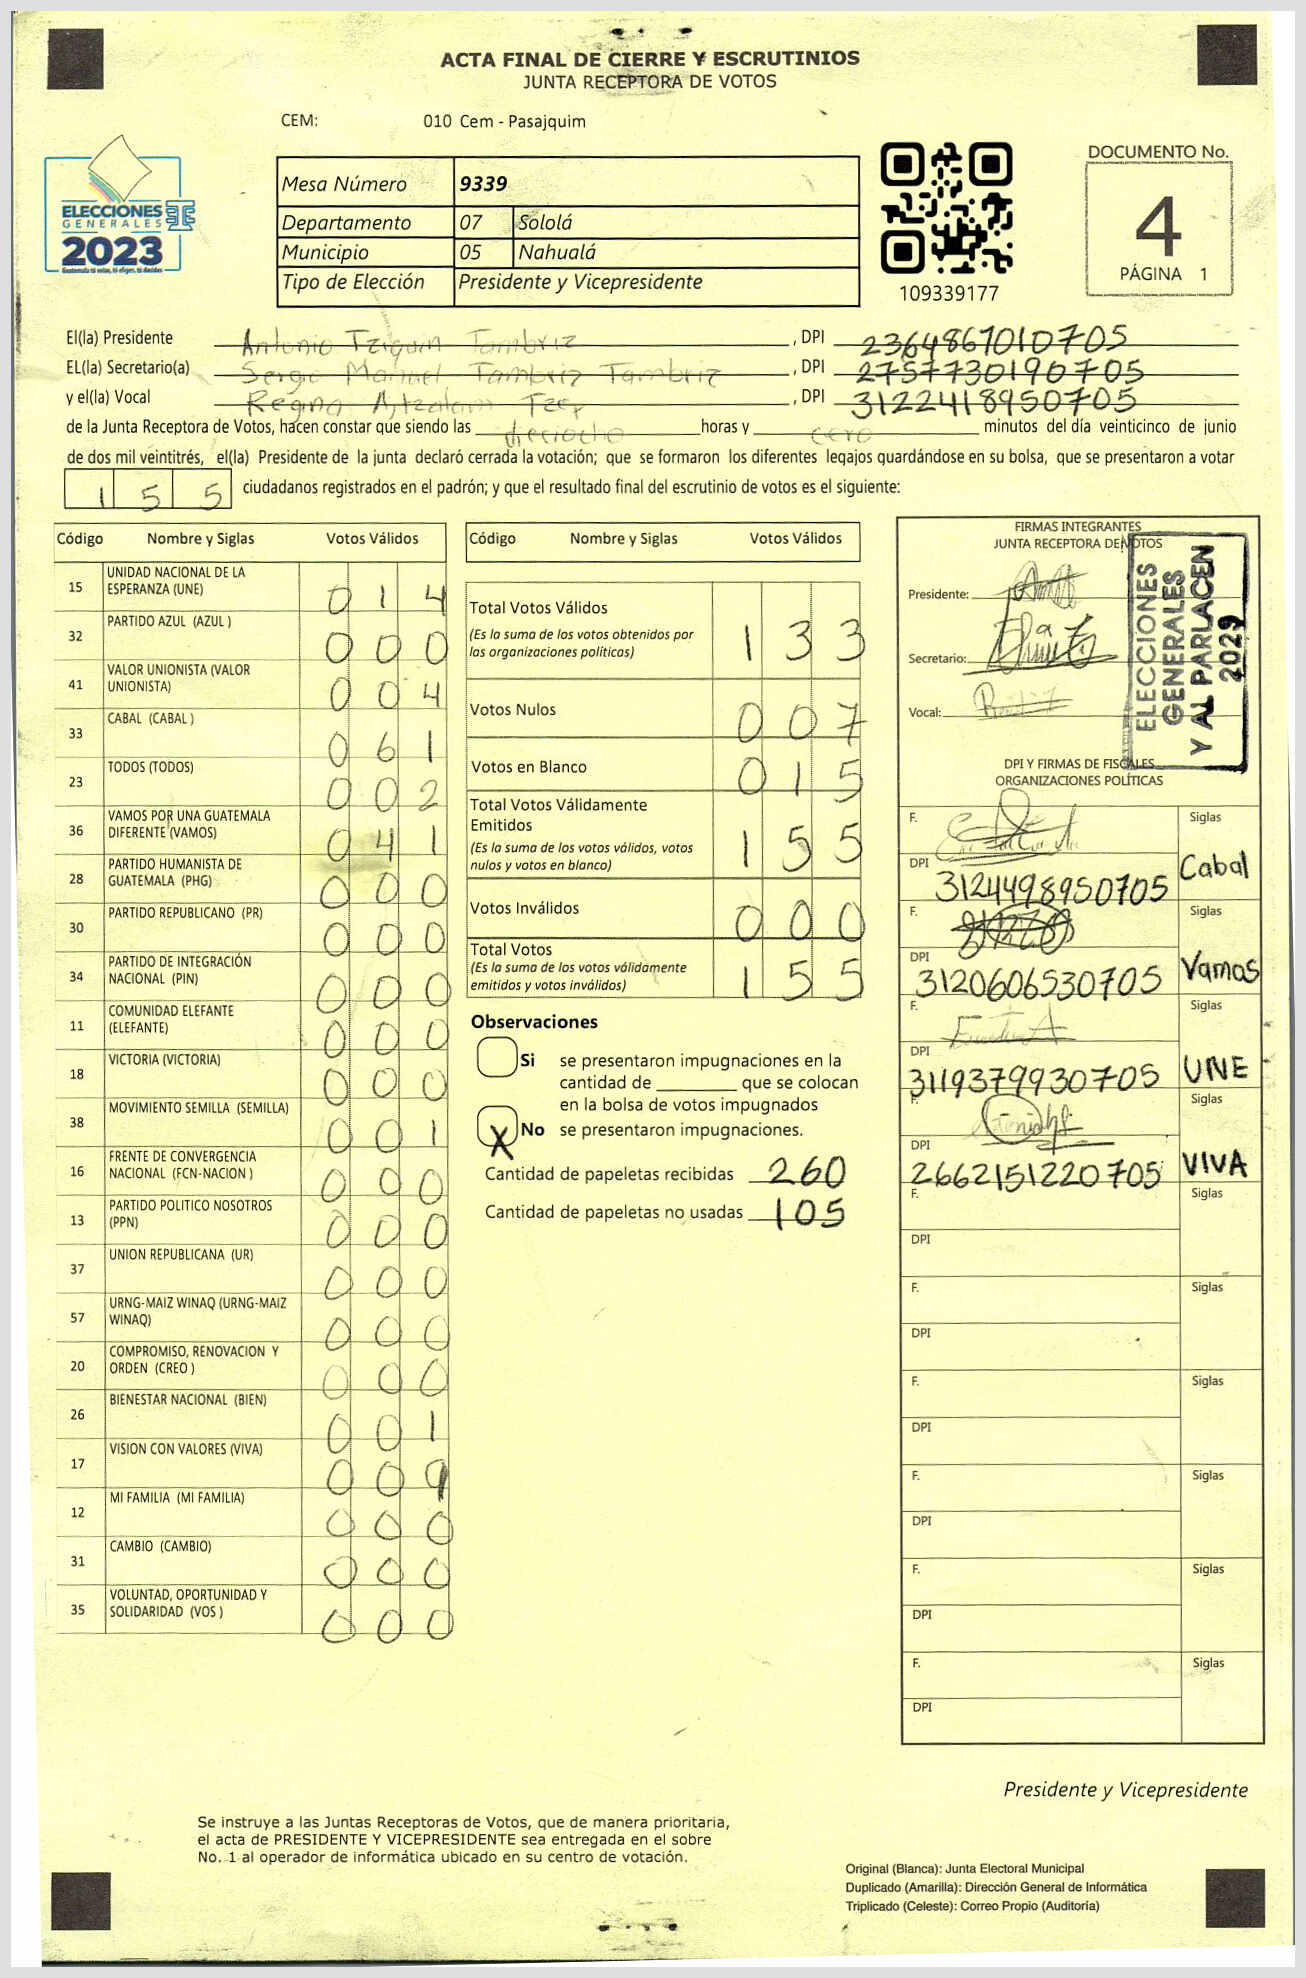 ACTA FINAL DE CIERRE Y ESCRUTINIOS
JUNTA RECEPTORA DE VOTOS
CEM: 010 Cem - Pasajquim
ELECCIONES
GENERALES
2023
Mesa Número 9339
Departamento 07 Sololá
Municipio 05 Nahualá
Tipo de Elección Presidente y Vicepresidente
109339177
DOCUMENTO No.
4
PÁGINA 1
El(la) Presidente Antonio Tziquin Tambriz, DPI 2364867010705
EL(la) Secretario(a) Sergio Manuel Tambriz Tambriz, DPI 2757730190705
y el(la) Vocal Regina Ajtzalam Tzep, DPI 3122418950705
de la Junta Receptora de Votos, hacen constar que siendo las dieciocho horas y cero minutos del día veinticinco de junio
de dos mil veintitrés, el(la) Presidente de la junta declaró cerrada la votación; que se formaron los diferentes legajos guardándose en su bolsa, que se presentaron a votar
155 ciudadanos registrados en el padrón; y que el resultado final del escrutinio de votos es el siguiente:
Código Nombre y Siglas Votos Válidos
15 UNIDAD NACIONAL DE LA ESPERANZA (UNE) 014
32 PARTIDO AZUL (AZUL ) 000
41 VALOR UNIONISTA (VALOR UNIONISTA) 004
33 CABAL (CABAL ) 061
23 TODOS (TODOS) 002
36 VAMOS POR UNA GUATEMALA DIFERENTE (VAMOS) 041
28 PARTIDO HUMANISTA DE GUATEMALA (PHG) 000
30 PARTIDO REPUBLICANO (PR) 000
34 PARTIDO DE INTEGRACIÓN NACIONAL (PIN) 000
11 COMUNIDAD ELEFANTE (ELEFANTE) 000
18 VICTORIA (VICTORIA) 000
38 MOVIMIENTO SEMILLA (SEMILLA) 001
16 FRENTE DE CONVERGENCIA NACIONAL (FCN-NACION ) 000
13 PARTIDO POLITICO NOSOTROS (PPN) 000
37 UNION REPUBLICANA (UR) 000
57 URNG-MAIZ WINAQ (URNG-MAIZ WINAQ) 000
20 COMPROMISO, RENOVACION Y ORDEN (CREO ) 000
26 BIENESTAR NACIONAL (BIEN) 001
17 VISION CON VALORES (VIVA) 009
12 MI FAMILIA (MI FAMILIA) 000
31 CAMBIO (CAMBIO) 000
35 VOLUNTAD, OPORTUNIDAD Y SOLIDARIDAD (VOS ) 000
Código Nombre y Siglas Votos Válidos
Total Votos Válidos 133
(Es la suma de los votos obtenidos por
las organizaciones políticas)
Votos Nulos 007
Votos en Blanco 015
Total Votos Válidamente
Emitidos 155
(Es la suma de los votos válidos, votos
nulos y votos en blanco)
Votos Inválidos 000
Total Votos 155
(Es la suma de los votos válidamente
emitidos y votos inválidos)
Observaciones
Si se presentaron impugnaciones en la
cantidad de ________ que se colocan
en la bolsa de votos impugnados
X No se presentaron impugnaciones.
Cantidad de papeletas recibidas 260
Cantidad de papeletas no usadas 105
FIRMAS INTEGRANTES
JUNTA RECEPTORA DE VOTOS
Presidente:
Secretario:
Vocal:
ELECCIONES
GENERALES
Y AL PARLACEN
2023
DPI Y FIRMAS DE FISCALES
ORGANIZACIONES POLÍTICAS
F. Siglas
DPI 3124498950705 Cabal
F. Siglas
DPI 3120606530705 Vamos
F. Siglas
DPI 3119379930705 UNE
F. Siglas
DPI 2662151220705 VIVA
F. Siglas
DPI
F. Siglas
DPI
F. Siglas
DPI
F. Siglas
DPI
F. Siglas
DPI
F. Siglas
DPI
Presidente y Vicepresidente
Se instruye a las Juntas Receptoras de Votos, que de manera prioritaria,
el acta de PRESIDENTE Y VICEPRESIDENTE sea entregada en el sobre
No. 1 al operador de informática ubicado en su centro de votación.
Original (Blanca): Junta Electoral Municipal
Duplicado (Amarilla): Dirección General de Informática
Triplicado (Celeste): Correo Propio (Auditoría)